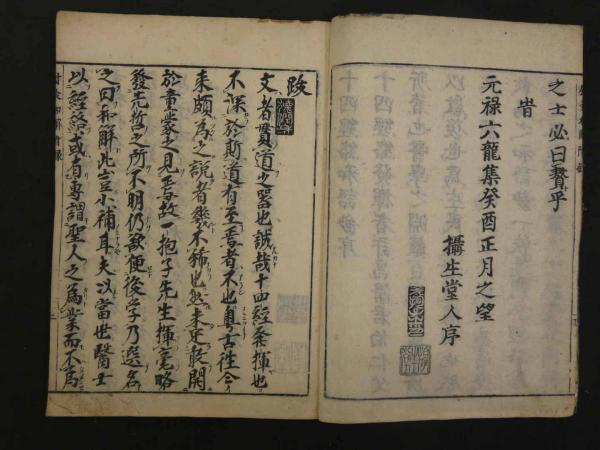 之士必曰贅乎
旹
元禄六龍集癸酉正月之望
攝生堂人序
跋
文者貫道之器也誠哉十四經發揮也
不深於斯道有至焉者不也粤古徃今
来頗為之説者幾不稀也然未足啟開
於童蒙之見焉故一抱子先生揮毫略
發先哲之所不明仍欲便後学乃号名
之曰和解此豈小補耳夫以當世醫士
以經絡或者専謂聖人之為業而不為